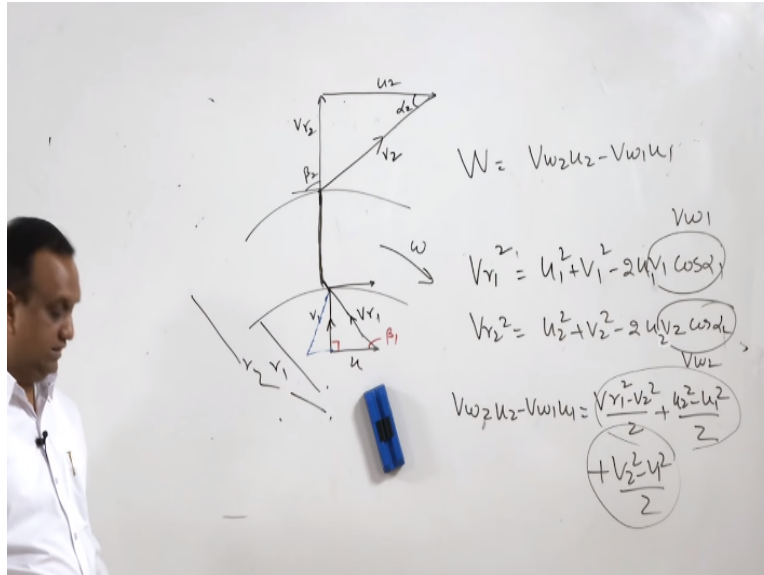 u2
α2
Vr2
V2
β2
ω
V1
Vr1
β1
u
r1
r2
W = Vw2u2-Vw1u1
Vw1
Vr1² = u1²+V1²-2u1V1cosα1
Vr2² = u2²+V2²-2u2V2cosα2
Vw2
Vw2u2-Vw1u1 = (Vr1²-V2²)/2 + (u2²-u1²)/2
+ (V2²-u²)/2